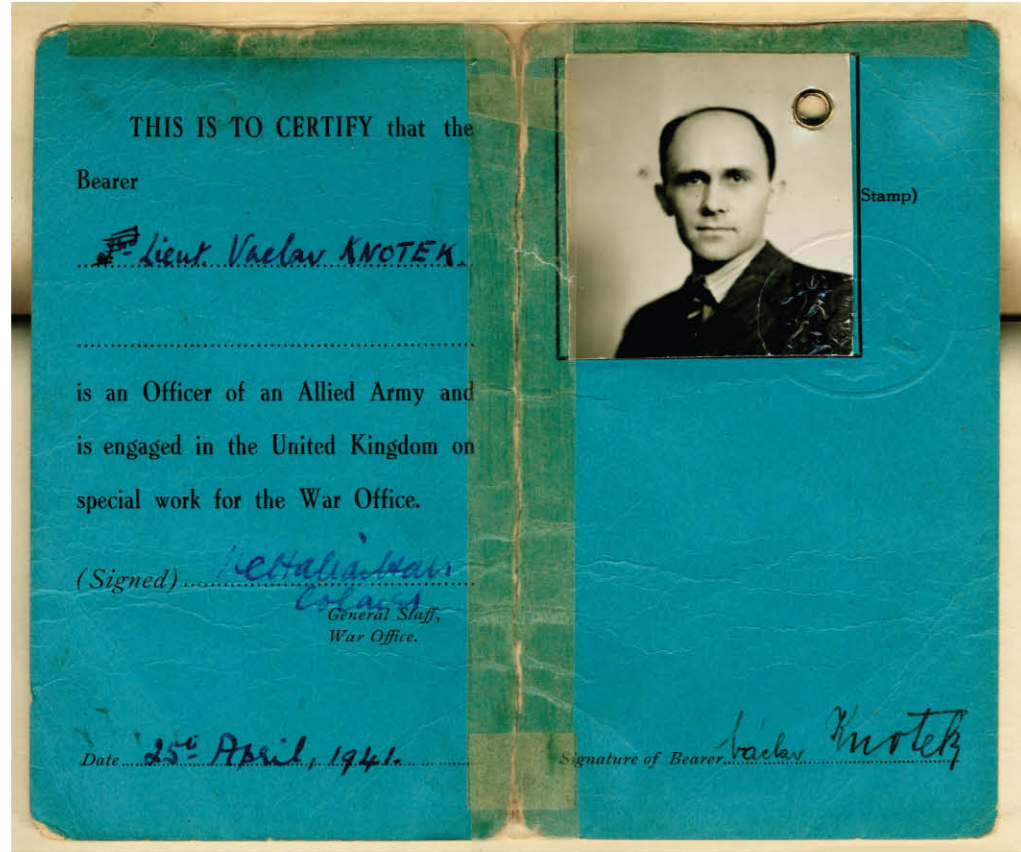 THIS IS TO CERTIFY that the
Bearer
Lieut. Vaclav KNOTEK.
is an Officer of an Allied Army and
is engaged in the United Kingdom on
special work for the War Office.
(Signed)
General Staff,
War Office.
Date 25th April, 1941.
Stamp)
Signature of Bearer, Václav Knotek